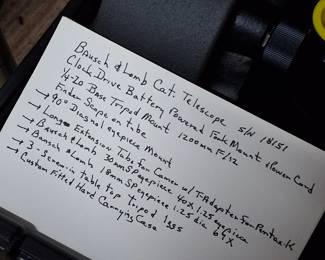 Bausch & Lomb Cat Telescope S/N 18151
Clock Drive Battery Powered Fork Mount + Power Cord
1/4-20 Base Tripod Mount 1200mm F/12
Finder Scope on tube
→ 90° Diagnal eyepiece Mount
→ Long Extension Tube For Camera w/T-Adapter For Pentax K
→ Bausch & Lomb 30mm SP eyepiece 40X 1.25 eyepiece
→ Bausch & Lomb 18mm SP eyepiece 1.25 dia 67X
→ 3 - Screw-in table top tripod legs
Custom Fitted Hard Carrying Case